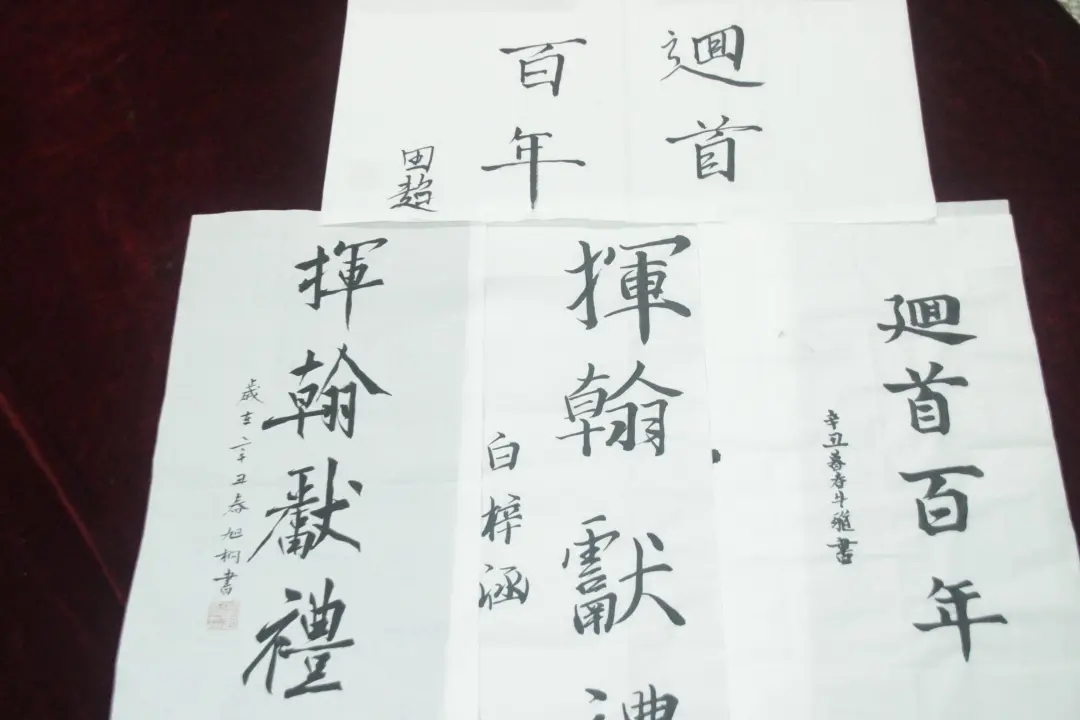 迴首
百年
田
廻首百年
辛丑暮春牛雅書
揮翰獻禮
白梓涵
揮翰獻禮
歲在辛丑春旭桐書